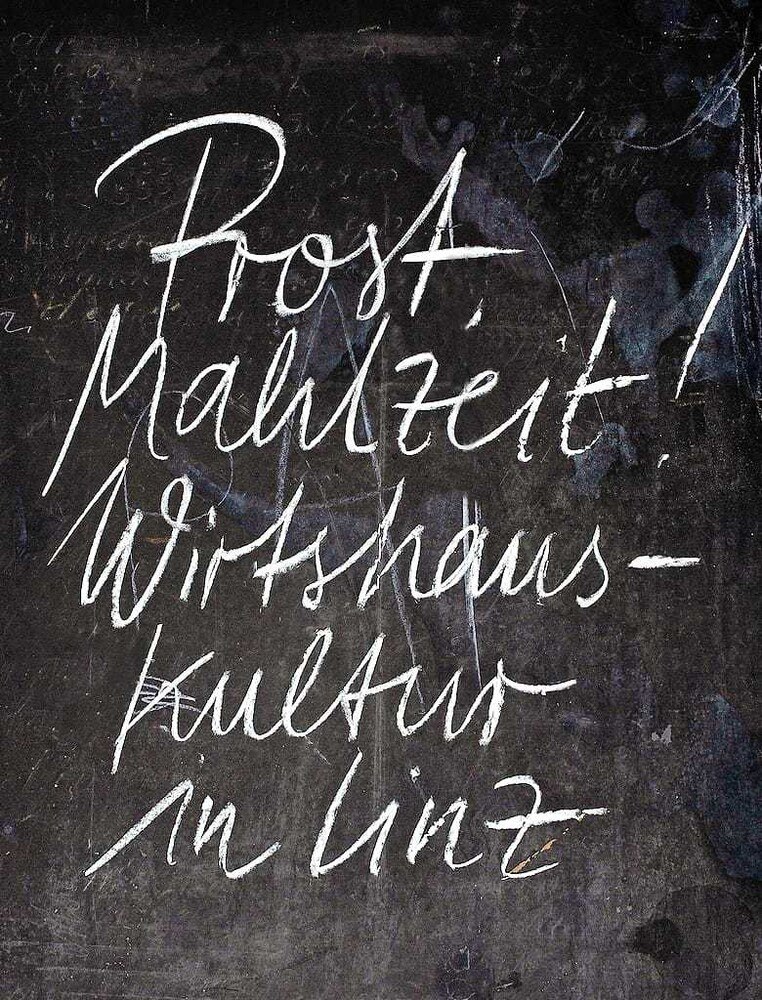 Prost,
Mahlzeit!
Wirtshaus-
kultur
in Linz